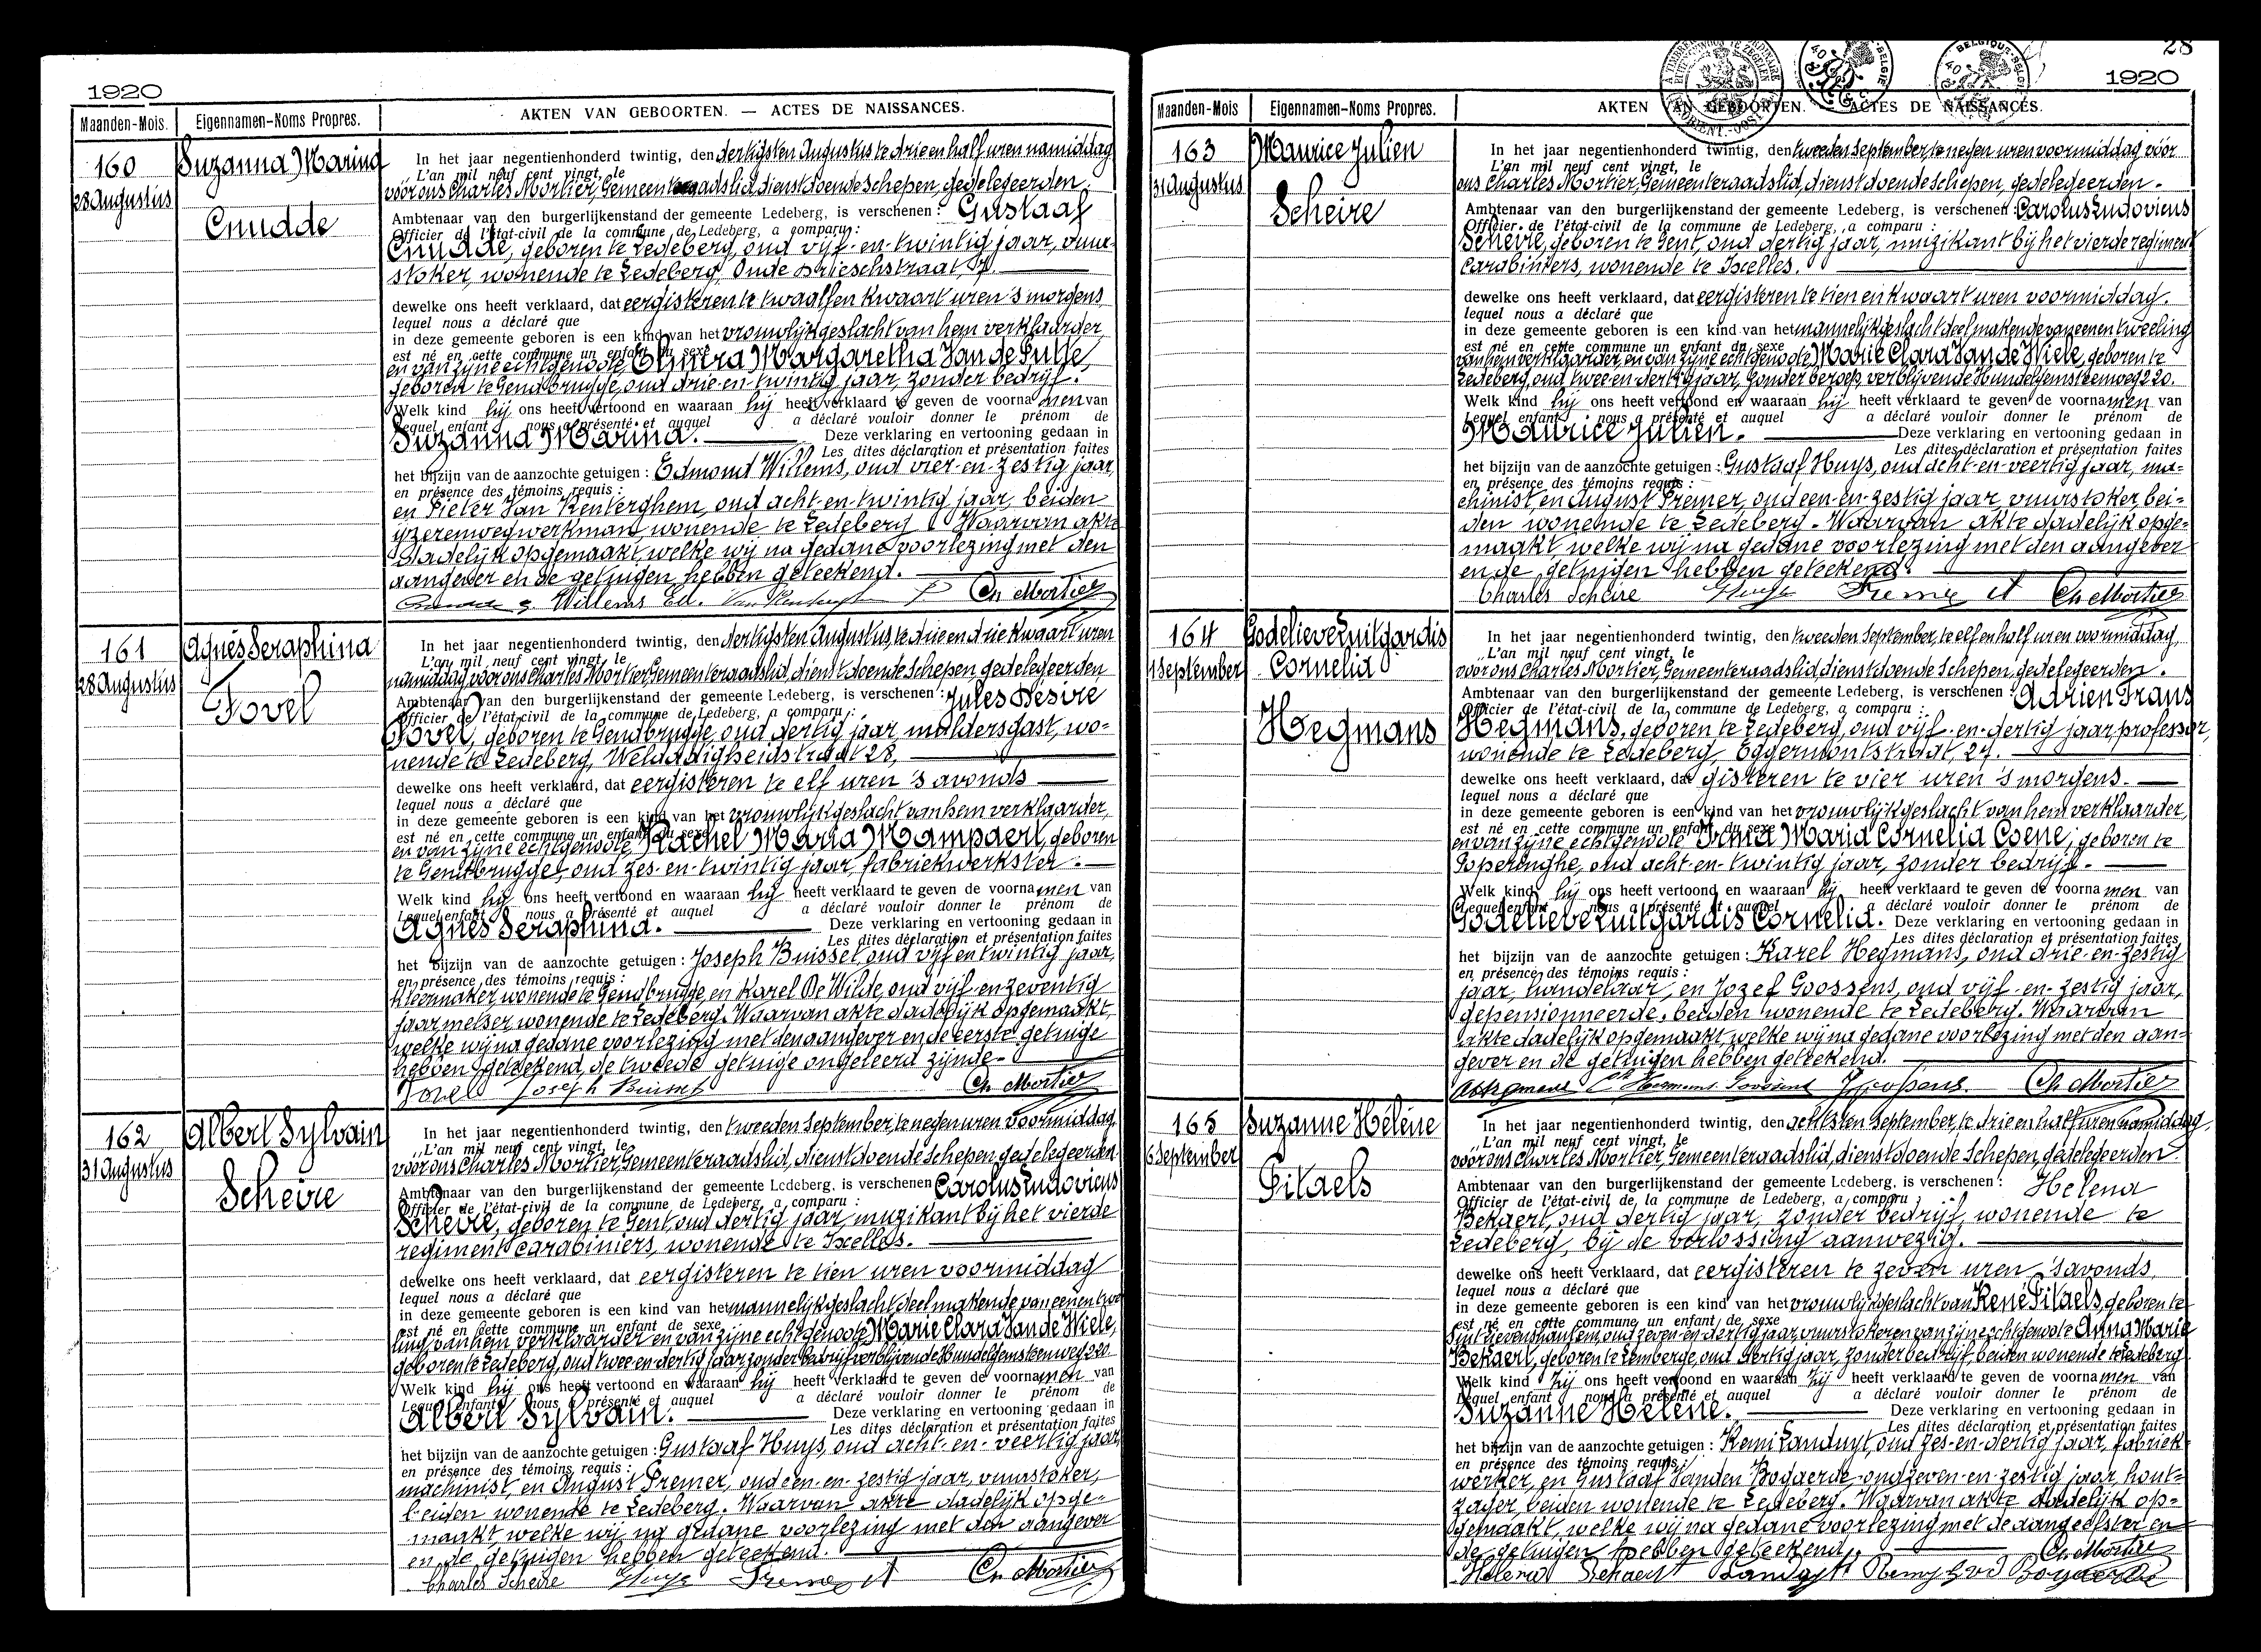 1920
Maanden-Mois.
Eigennamen-Noms Propres.
AKTEN VAN GEBOORTEN. — ACTES DE NAISSANCES.
160
28 Augustus
Suzanna Marina
Cnudde
In het jaar negentienhonderd twintig, den dertigsten Augustus te drie en half uren namiddag
L'an mil neuf cent vingt, le
voor ons Charles Mortier, Gemeenteraadslid, dienstdoende Schepen, gedelegeerden
Ambtenaar van den burgerlijkenstand der gemeente Ledeberg, is verschenen: Gustaaf
Officier de l'état-civil de la commune de Ledeberg, a comparu:
Cnudde, geboren te Ledeberg, oud vijf-en-twintig jaar, vuur-
stoker, wonende te Ledeberg, Oude Brieschstraat, 7.
dewelke ons heeft verklaard, dat eergisteren te twaalf en kwaart uren 's morgens
lequel nous a déclaré que
in deze gemeente geboren is een kind van het vrouwlijk geslacht van hem verklaarder
est né en cette commune un enfant du sexe
en van zijne echtgenoote, Elmira Margaretha Van de Putte,
geboren te Gendbrugge, oud drie-en-twintig jaar, zonder bedrijf.
Welk kind hij ons heeft vertoond en waaraan hij heeft verklaard te geven de voornamen van
Lequel enfant nous a présenté et auquel a déclaré vouloir donner le prénom de
Suzanna Marina. Deze verklaring en vertooning gedaan in
Les dites déclaration et présentation faites
het bijzijn van de aanzochte getuigen: Edmond Willems, oud vier-en-zestig jaar,
en présence des témoins requis:
en Pieter Van Renterghem, oud acht-en-twintig jaar, beiden
yzerenwegwerkman, wonende te Ledeberg. Waarvan akte
dadelijk opgemaakt, welke wij na gedane voorlezing met den
aangever en de getuigen hebben geteekend.
Willems Ed. Ch Mortier
161
28 Augustus
Agnès Seraphina
Fovel
In het jaar negentienhonderd twintig, den dertigsten Augustus, te drie en drie kwaart uren
L'an mil neuf cent vingt, le
namiddag voor ons Charles Mortier, Gemeenteraadslid, dienstdoende Schepen, gedelegeerden
Ambtenaar van den burgerlijkenstand der gemeente Ledeberg, is verschenen: Jules Désiré
Officier de l'état-civil de la commune de Ledeberg, a comparu:
Fovel, geboren te Gendbrugge, oud dertig jaar, muldersgast, wo-
nende te Ledeberg, Weldadigheidstraat 28,
dewelke ons heeft verklaard, dat eergisteren te elf uren 's avonds
lequel nous a déclaré que
in deze gemeente geboren is een kind van het vrouwlijk geslacht van hem verklaarder,
est né en cette commune un enfant du sexe
en van zijne echtgenoote, Rachel Maria Mampaert, geboren
te Gendbrugge, oud zes-en-twintig jaar, fabriekwerkster.
Welk kind hij ons heeft vertoond en waaraan hij heeft verklaard te geven de voornamen van
Lequel enfant nous a présenté et auquel a déclaré vouloir donner le prénom de
Agnès Seraphina. Deze verklaring en vertooning gedaan in
Les dites déclaration et présentation faites
het bijzijn van de aanzochte getuigen: Joseph Buisset, oud vijf en twintig jaar,
en présence des témoins requis:
kleermaker, wonende te Gendbrugge, en Karel De Wilde, oud vijf-en-zeventig
jaar metser, wonende te Ledeberg. Waarvan akte dadelijk opgemaakt,
welke wij na gedane voorlezing met den aangever en de eerste getuige
hebben geteekend, de tweede getuige ongeleerd zijnde.
Fovel Joseph Buisset Ch Mortier
162
31 Augustus
Albert Sylvain
Scheire
In het jaar negentienhonderd twintig, den tweeden September, te negen uren voormiddag,
L'an mil neuf cent vingt, le
voor ons Charles Mortier, Gemeenteraadslid, dienstdoende Schepen gedelegeerden
Ambtenaar van den burgerlijkenstand der gemeente Ledeberg, is verschenen Carolus Ludovicus
Officier de l'état-civil de la commune de Ledeberg, a comparu:
Scheire, geboren te Gent, oud dertig jaar, muzikant bij het vierde
regiment carabiniers, wonende te Ixelles.
dewelke ons heeft verklaard, dat eergisteren te tien uren voormiddag
lequel nous a déclaré que
in deze gemeente geboren is een kind van het mannelijk geslacht deel makende van eenen twee
est né en cette commune un enfant de sexe
ling van hem verklaarder en van zijne echtgenoote Marie Clara Van de Wiele,
geboren te Ledeberg, oud twee en dertig jaar, zonder bedrijf verblijvende Hundelgemsteenweg 220
Welk kind hij ons heeft vertoond en waaraan hij heeft verklaard te geven de voornamen van
Lequel enfant nous a présenté et auquel a déclaré vouloir donner le prénom de
Albert Sylvain. Deze verklaring en vertooning gedaan in
Les dites déclaration et présentation faites
het bijzijn van de aanzochte getuigen: Gustaaf Huys, oud acht-en-veertig jaar,
en présence des témoins requis:
machinist, en August Premer, oud een-en-zestig jaar, vuurstoker,
beiden wonende te Ledeberg. Waarvan akte dadelijk opge-
maakt, welke wij na gedane voorlezing met den aangever
en de getuigen hebben geteekend.
Charles Scheire Huys Premer A Ch Mortier
28
1920
Maanden-Mois
Eigennamen-Noms Propres.
AKTEN VAN GEBOORTEN. ACTES DE NAISSANCES.
163
31 Augustus
Maurice Julien
Scheire
In het jaar negentienhonderd twintig, den tweeden September, te negen uren voormiddag voor
L'an mil neuf cent vingt, le
ons Charles Mortier, Gemeenteraadslid, dienstdoende Schepen, gedelegeerden.
Ambtenaar van den burgerlijkenstand der gemeente Ledeberg, is verschenen: Carolus Ludovicus
Officier de l'état-civil de la commune de Ledeberg, a comparu:
Scheire, geboren te Gent, oud dertig jaar, muzikant bij het vierde regiment
carabiniers, wonende te Ixelles.
dewelke ons heeft verklaard, dat eergisteren te tien en kwaart uren voormiddag.
lequel nous a déclaré que
in deze gemeente geboren is een kind van het mannelijk geslacht deel makende van eenen tweeling
est né en cette commune un enfant du sexe
van hem verklaarder en van zijne echtgenoote, Marie Clara Van de Wiele, geboren te
Ledeberg, oud twee en dertig jaar, zonder beroep, verblijvende Hundelgemsteenweg 220.
Welk kind hij ons heeft vertoond en waaraan hij heeft verklaard te geven de voornamen van
Lequel enfant nous a présenté et auquel a déclaré vouloir donner le prénom de
Maurice Julien. Deze verklaring en vertooning gedaan in
Les dites déclaration et présentation faites
het bijzijn van de aanzochte getuigen: Gustaaf Huys, oud acht-en-veertig jaar, ma-
en présence des témoins requis:
chinist, en August Premer, oud een-en-zestig jaar, vuurstoker, bei-
den wonende te Ledeberg. Waarvan akte dadelijk opge-
maakt, welke wij na gedane voorlezing met den aangever
en de getuigen hebben geteekend.
Charles Scheire Huys Premer A Ch Mortier
164
1 September
Godelieve Luitgardis
Cornelia
Hegmans
In het jaar negentienhonderd twintig, den tweeden September, te elf en half uren voormiddag,
L'an mil neuf cent vingt, le
voor ons Charles Mortier, Gemeenteraadslid, dienstdoende Schepen, gedelegeerden.
Ambtenaar van den burgerlijkenstand der gemeente Ledeberg, is verschenen: Adrien Frans
Officier de l'état-civil de la commune de Ledeberg, a comparu:
Hegmans, geboren te Ledeberg, oud vijf-en-dertig jaar, professor,
wonende te Ledeberg, Eggermontstraat, 27.
dewelke ons heeft verklaard, dat gisteren te vier uren 's morgens.
lequel nous a déclaré que
in deze gemeente geboren is een kind van het vrouwlijk geslacht van hem verklaarder,
est né en cette commune un enfant du sexe
en van zijne echtgenoote Irma Maria Cornelia Coene, geboren te
Poperinghe, oud acht-en-twintig jaar, zonder bedrijf.
Welk kind hij ons heeft vertoond en waaraan hij heeft verklaard te geven de voornamen van
Lequel enfant nous a présenté et auquel a déclaré vouloir donner le prénom de
Godelieve Luitgardis Cornelia. Deze verklaring en vertooning gedaan in
Les dites déclaration et présentation faites
het bijzijn van de aanzochte getuigen: Karel Hegmans, oud drie-en-zestig
en présence des témoins requis:
jaar, handelaar, en Jozef Goossens, oud vijf-en-zestig jaar,
gepensionneerde, beiden wonende te Ledeberg. Waarvan
akte dadelijk opgemaakt, welke wij na gedane voorlezing met den aan-
gever en de getuigen hebben geteekend.
Ch Mortier
165
6 September
Suzanne Hélène
Pitaels
In het jaar negentienhonderd twintig, den achtsten September, te drie en half uren namiddag,
L'an mil neuf cent vingt, le
voor ons Charles Mortier, Gemeenteraadslid, dienstdoende Schepen, gedelegeerden
Ambtenaar van den burgerlijkenstand der gemeente Ledeberg, is verschenen: Helena
Officier de l'état-civil de la commune de Ledeberg, a comparu
Bekaert, oud dertig jaar, zonder bedrijf, wonende te
Ledeberg, bij de verlossing aanwezig.
dewelke ons heeft verklaard, dat eergisteren te zeven uren 's avonds,
lequel nous a déclaré que
in deze gemeente geboren is een kind van het vrouwlijk geslacht van René Pitaels, geboren te
est né en cette commune un enfant de sexe
Sint Lievenshautem, oud zeven-en-dertig jaar, vuurstoker en van zijne echtgenoote Anna Marie
Bekaert, geboren te Lemberge, oud dertig jaar, zonder bedrijf, beiden wonende te Ledeberg.
Welk kind zij ons heeft vertoond en waaraan zij heeft verklaard te geven de voornamen van
Lequel enfant nous a présenté et auquel a déclaré vouloir donner le prénom de
Suzanne Hélène. Deze verklaring en vertooning gedaan in
Les dites déclaration et présentation faites
het bijzijn van de aanzochte getuigen: Remi Landuyt, oud zes-en-dertig jaar, fabriek-
en présence des témoins requis:
werker, en Gustaaf Vanden Bogaerde oud zeven-en-zestig jaar, hout-
zager, beiden wonende te Ledeberg. Waarvan akte dadelijk op-
gemaakt, welke wij na gedane voorlezing met de aangeefster en
de getuigen hebben geteekend.
Ch Mortier
Helena Bekaert Landuyt Remy G.v.d Bogaerde